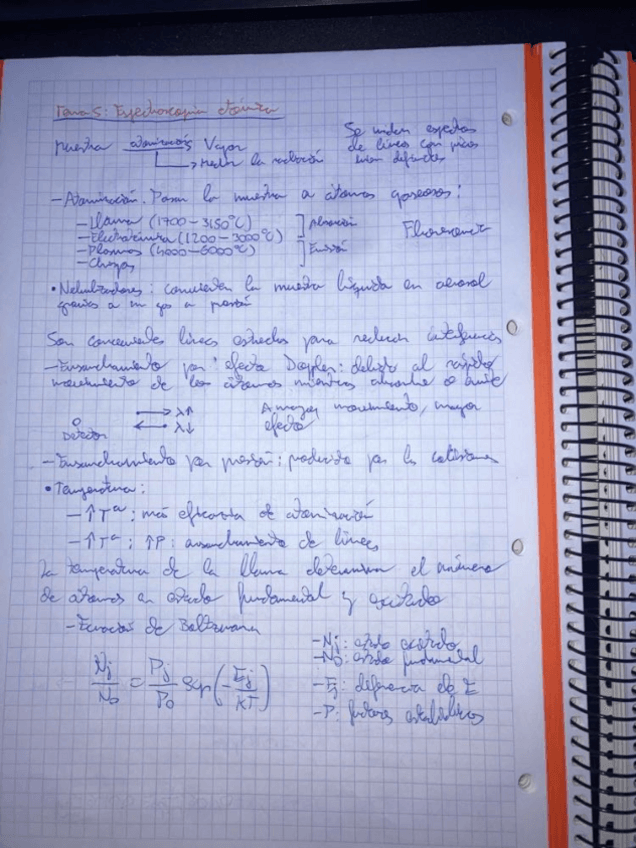 Tema 5: Espectroscopía atómica
Muestra atomización Vapor
Medir la radiación
Se miden espectros
de líneas con picos
bien definidos
- Atomización. Pasar la muestra a átomos gaseosos:
- Llama (1700-3150°C)
- Electrotérmica (1200-3000°C)
- Plasmas (4000-6000°C)
- Chispas
Absorción
Emisión
Fluorescencia
• Nebulizadores: convierten la muestra líquida en aerosol
gracias a un gas a presión
Son convenientes líneas estrechas para reducir interferencias
- Ensanchamiento por efecto Doppler: debido al rápido
movimiento de los átomos mientras absorbe o emite
Detector
→ λ↑
← λ↓
A mayor movimiento, mayor
efecto
- Ensanchamiento por presión; producido por las colisiones
• Temperatura:
- ↑Tª; más eficacia de atomización
- ↑Tª; ↑P: ensanchamiento de líneas
La temperatura de la llama determina el número
de átomos en estado fundamental y excitado
- Ecuación de Boltzmann
Nj/N0 = Pj/P0 exp(-Ej/KT)
- Nj: estado excitado
- N0: estado fundamental
- Ej: diferencia de E
- P: factores estadísticos